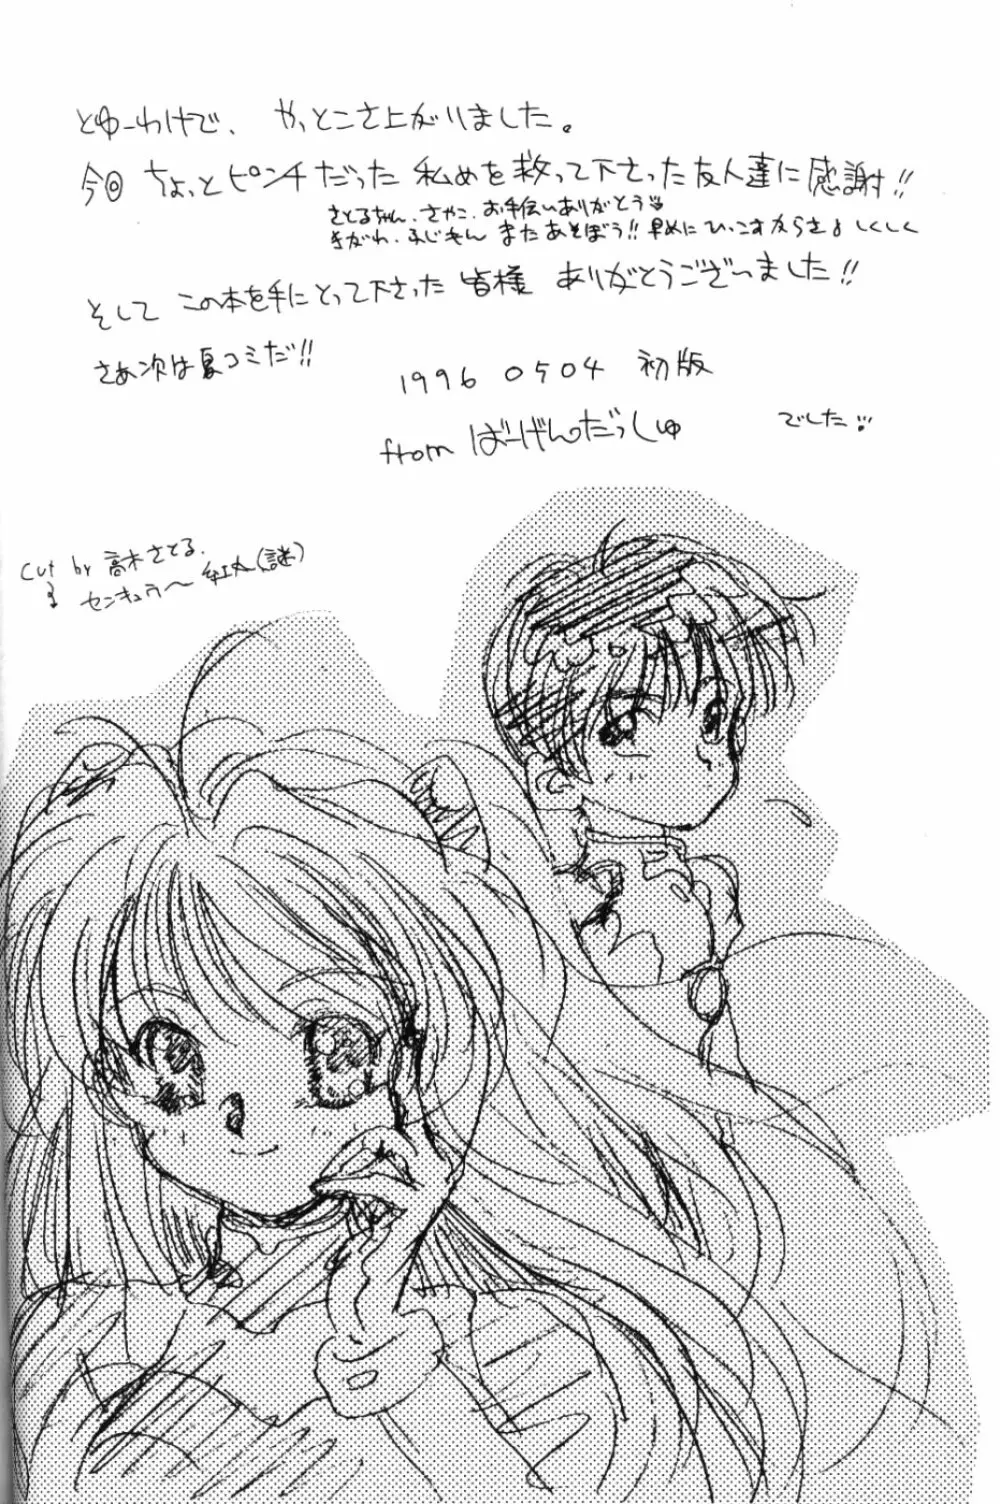 とゆーわけで、やっとこさ上がりました。
今回ちょっとピンチだった私めを救って下さった友人達に感謝!!
さとるちゃん、さやこ、お手伝いありがとう♡
きがわ、ふじもん またあそぼう!! 早めにひっこすからさ しくしく
そして この本を手にとって下さった皆様 ありがとうございました!!
さあ次は夏コミだ!!
1996 0504 初版
from ばーげんだっしゅ でした
cut by 高木さとる.
センキュウ〜 紅丸(謎)